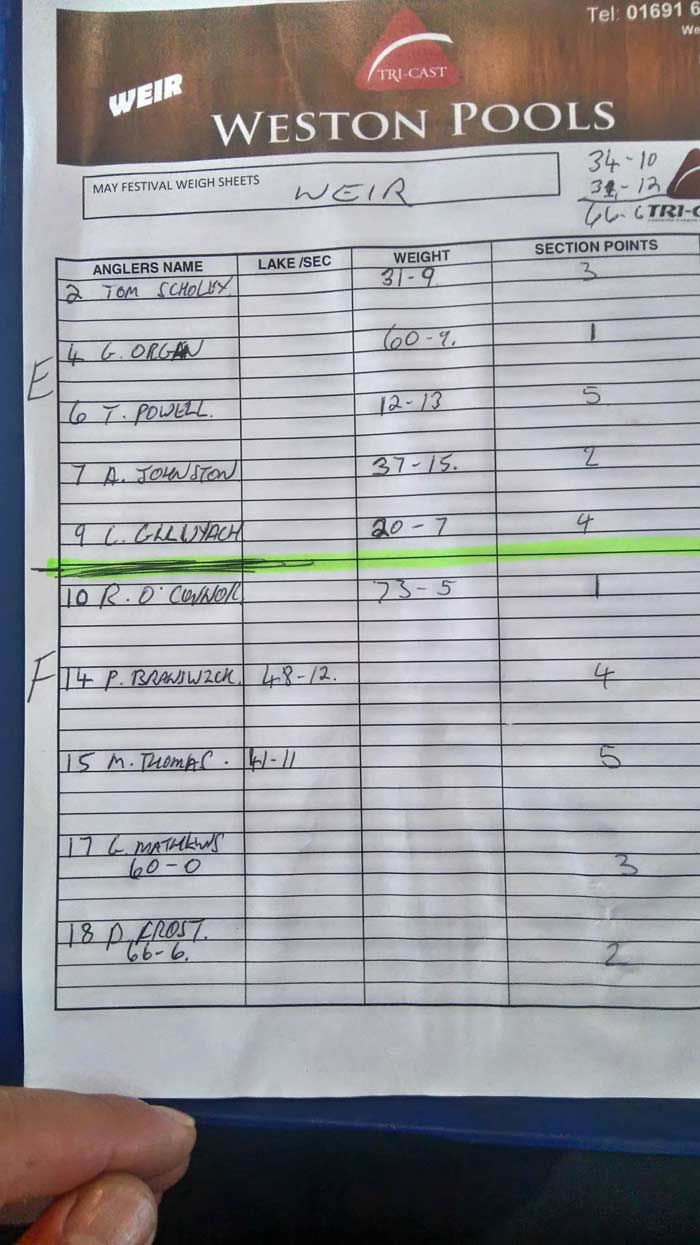 Tel: 01691 6
We
WEIR
TRI-CAST
WESTON POOLS
MAY FESTIVAL WEIGH SHEETS WEIR
34-10
31-12
66-6 TRI-C
ANGLERS NAME LAKE /SEC WEIGHT SECTION POINTS
2 TOM 31-9 3
4 G. ORGAN 60-9. 1
E
6 T. POWELL. 12-13 5
7 A. JOHNSTON 37-15. 2
9 20-7 4
10 R. O'CONNOR 73-5 1
F
14 P. BRANSWICK. 48-12. 4
15 M. THOMAS. 41-11 5
17 G MATHEWS
60-0 3
18 D. FROST.
66-6. 2